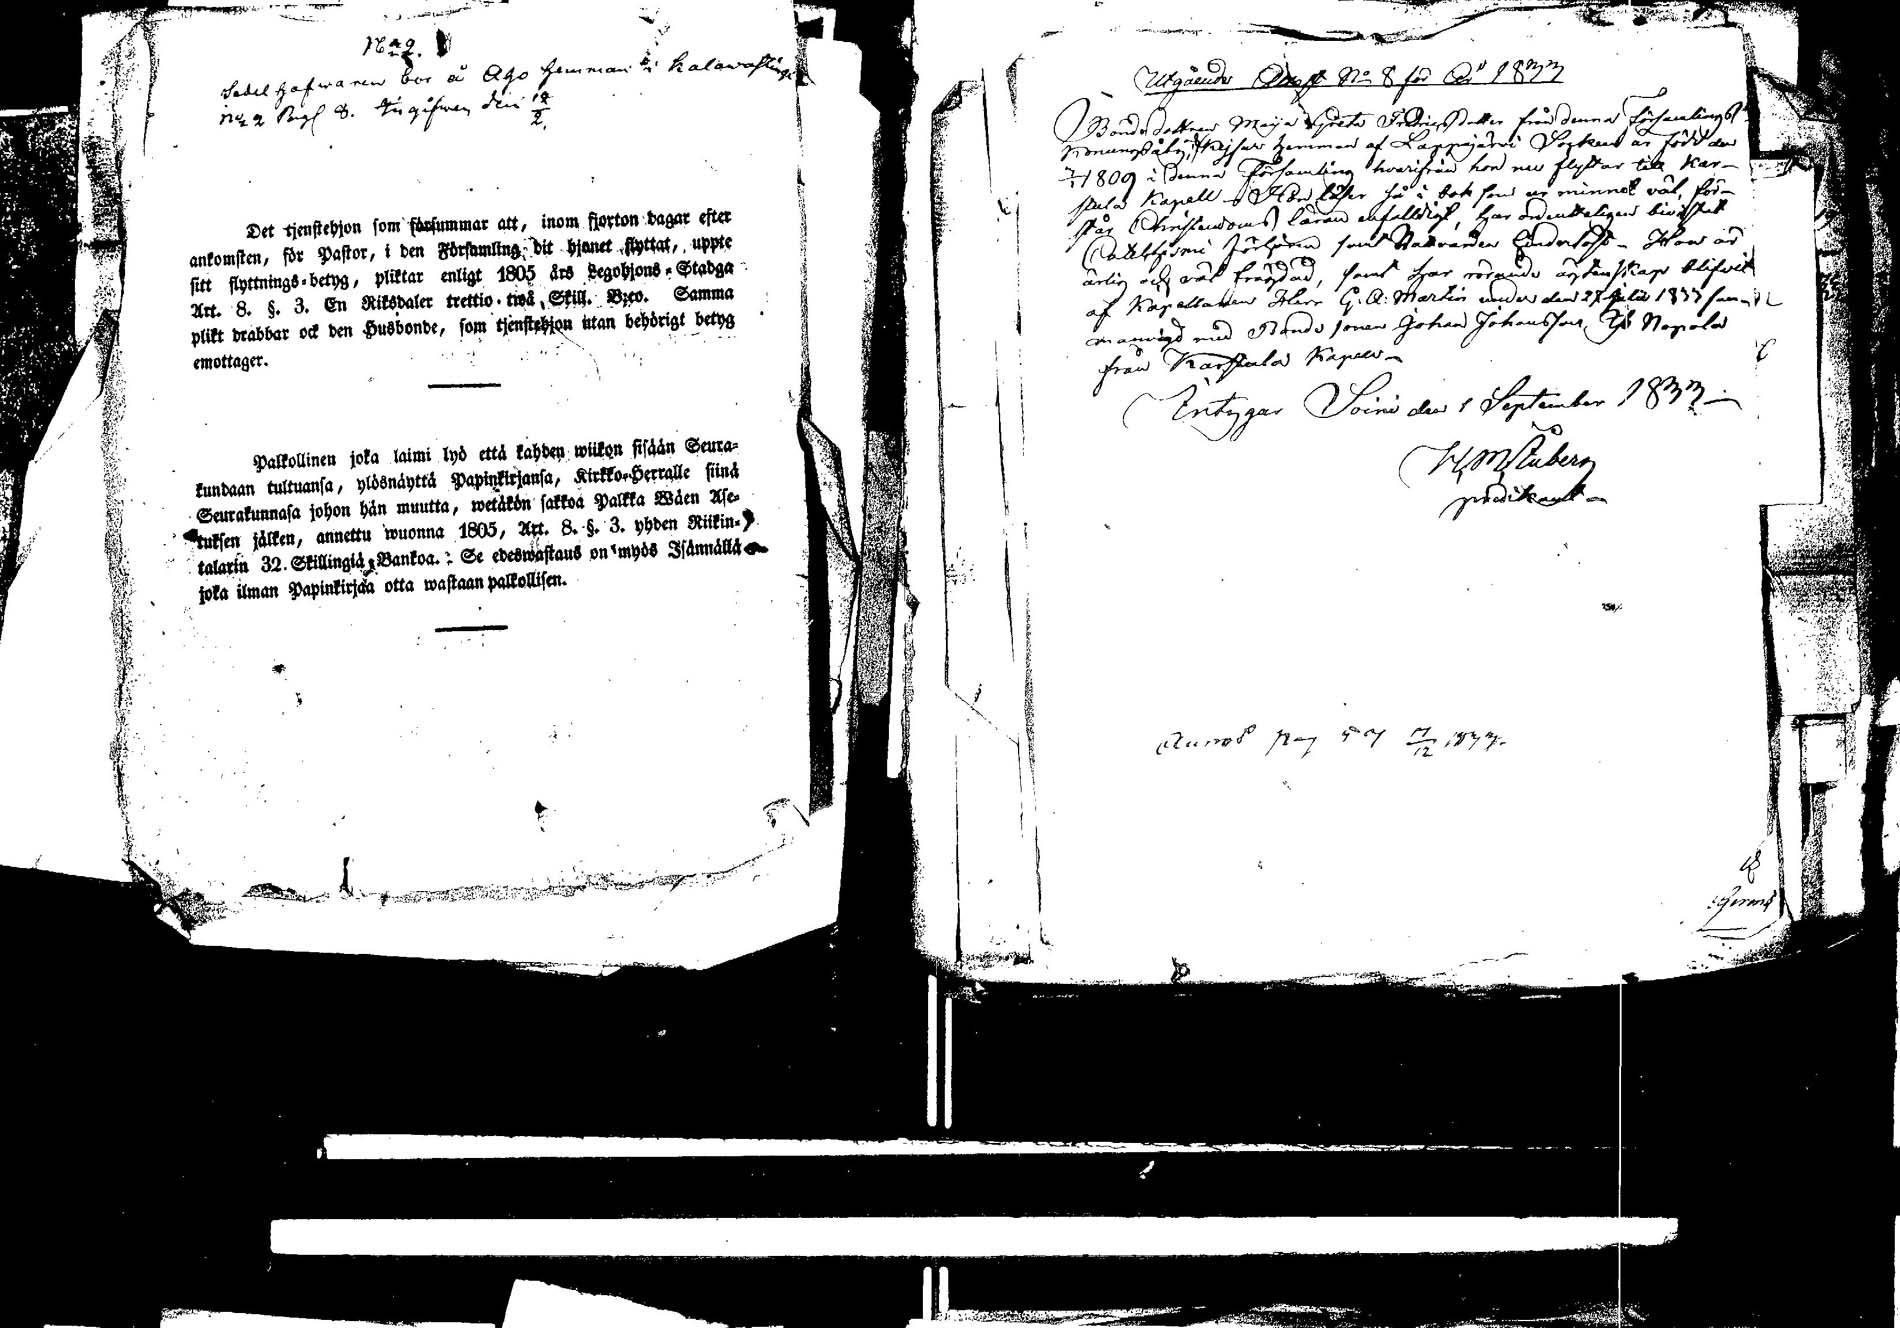 No 2.
Sedel hafwaren bor å Aho Hemman i Kalawesi
No 2 Pag 8. Angifwen den 12/2.
Det tjenstehjon som försummar att, inom fjorton dagar efter
ankomsten, för Pastor, i den Församling dit hjonet flyttat, uppte
sitt flyttnings-betyg, pliktar enligt 1805 års Legohjons-Stadga
Art. 8. §. 3. En Riksdaler trettio-twå Skill. B:co. Samma
plikt drabbar ock den Husbonde, som tjenstehjon utan behörigt betyg
emottager.
Palkollinen joka laimi lyö että kahden wiikon sisään Seura-
kundaan tultuansa, ylösnäyttä Papinkirjansa, Kirkko-Herralle siinä
Seurakunnasa johon hän muutta, wetäkön sakkoa Palkka Wäen Ase-
tuksen jälken, annettu wuonna 1805, Art. 8. §. 3. yhden Riikin-
talarin 32 Skillingiä Bankoa. Se edeswastaus on myös Isännällä
joka ilman Papinkirjaa otta wastaan palkollisen.
Utgående Attest No 8 för År 1833
Bondedottren Maja Greta Fredricsdotter från denna Församlings
Hemman af Lappajärvi Socken är född den
1809 i denna Församling hvarifrån hon nu flyttar till Kar-
stula Kapell. Hon läser så i bok som ur minnet väl, för-
står Christendoms läran enfaldigt, har ordenteligen bivistat
Catechismi förhören samt Nattvarden - Hon är
ärlig och väl frägdad, samt har äktenskap blifvit
af Kapellanen Herr G. A. Martin under den 27 Julii 1833 sam-
manvigd med Bonde sonen Johan Johansson
från Karstula Kapell
Intygar Soini den 1 September 1833
predikant
Pag 57 7/12 1833.